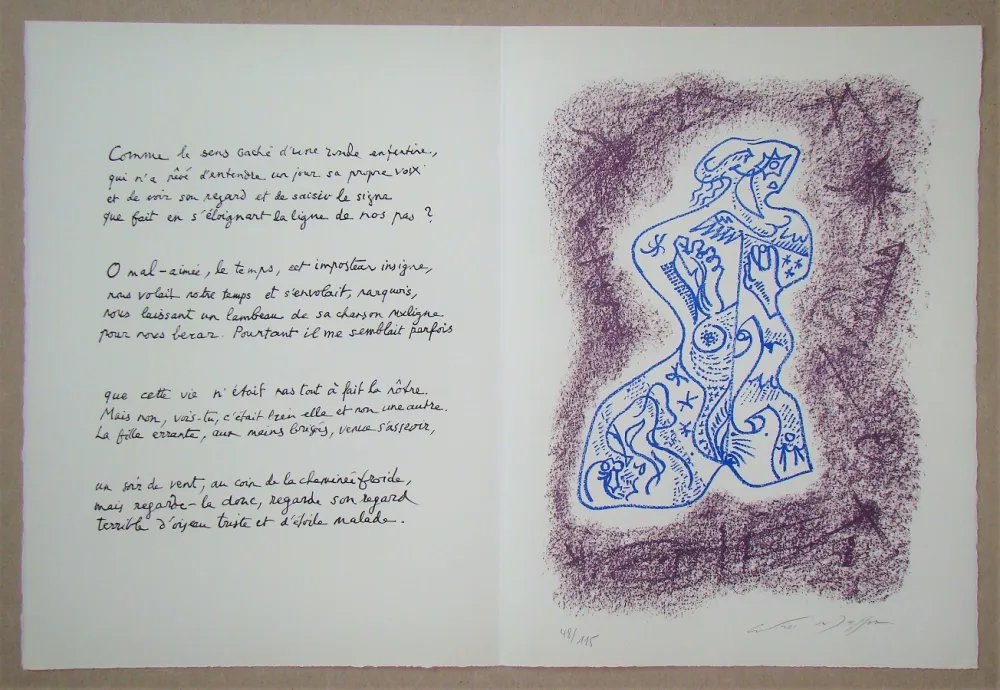 Comme le sens caché d'une ronde enfantine,
qui n'a rêvé d'entendre un jour sa propre voix
et de voir son regard et de saisir le signe
que fait en s'éloignant la ligne de nos pas ?
O mal-aimée, le temps, cet imposteur insigne,
nous volait notre temps et s'envolait, narquois,
nous laissant un lambeau de sa chanson maligne
pour nous bercer. Pourtant il me semblait parfois
que cette vie n'était pas tout à fait la nôtre.
Mais non, vois-tu, c'était bien elle et non une autre.
La fille errante, aux mains brisées, venue s'asseoir,
un soir de vent, au coin de la cheminée froide,
mais regarde-la donc, regarde son regard
terrible d'oiseau triste et d'étoile malade.
48/115
André Masson